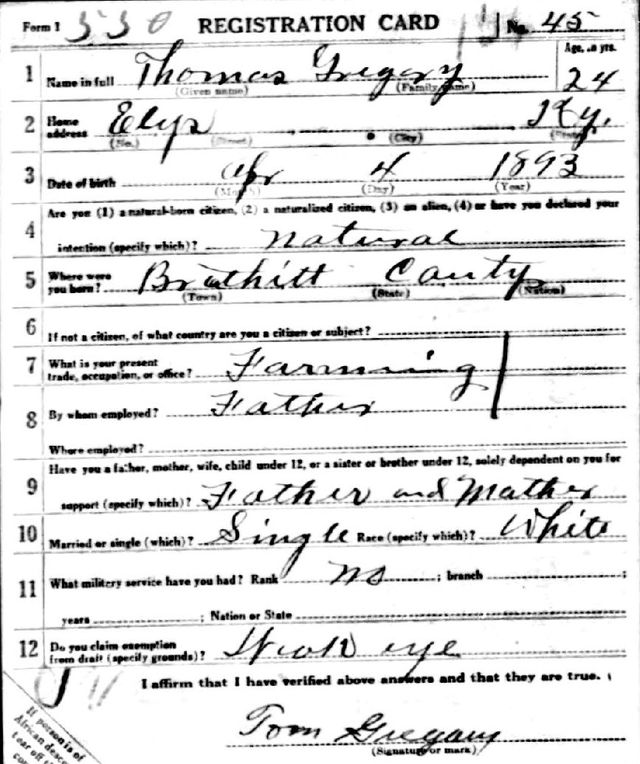 Form 1 550 REGISTRATION CARD No. 45
1 Name in full Thomas Gregory Age, in yrs.
(Given name) (Family name) 24
2 Home address Elys Ky.
(No.) (Street) (City) (State)
3 Date of birth Apr 4 1893
(Month) (Day) (Year)
4 Are you (1) a natural-born citizen, (2) a naturalized citizen, (3) an alien, (4) or have you declared your
intention (specify which)? Natural
5 Where were you born? Brathitt Couty
(Town) (State) (Nation)
6 If not a citizen, of what country are you a citizen or subject?
7 What is your present
trade, occupation, or office? Farming
8 By whom employed? Father
Where employed?
9 Have you a father, mother, wife, child under 12, or a sister or brother under 12, solely dependent on you for
support (specify which)? Father and Mather
10 Married or single (which)? Single Race (specify which)? White
11 What military service have you had? Rank no ; branch ;
years ; Nation or State
12 Do you claim exemption
from draft (specify grounds)? Weak eye
I affirm that I have verified above answers and that they are true.
Tom Gregory
(Signature or mark)
If person is of
African desce
tear off th